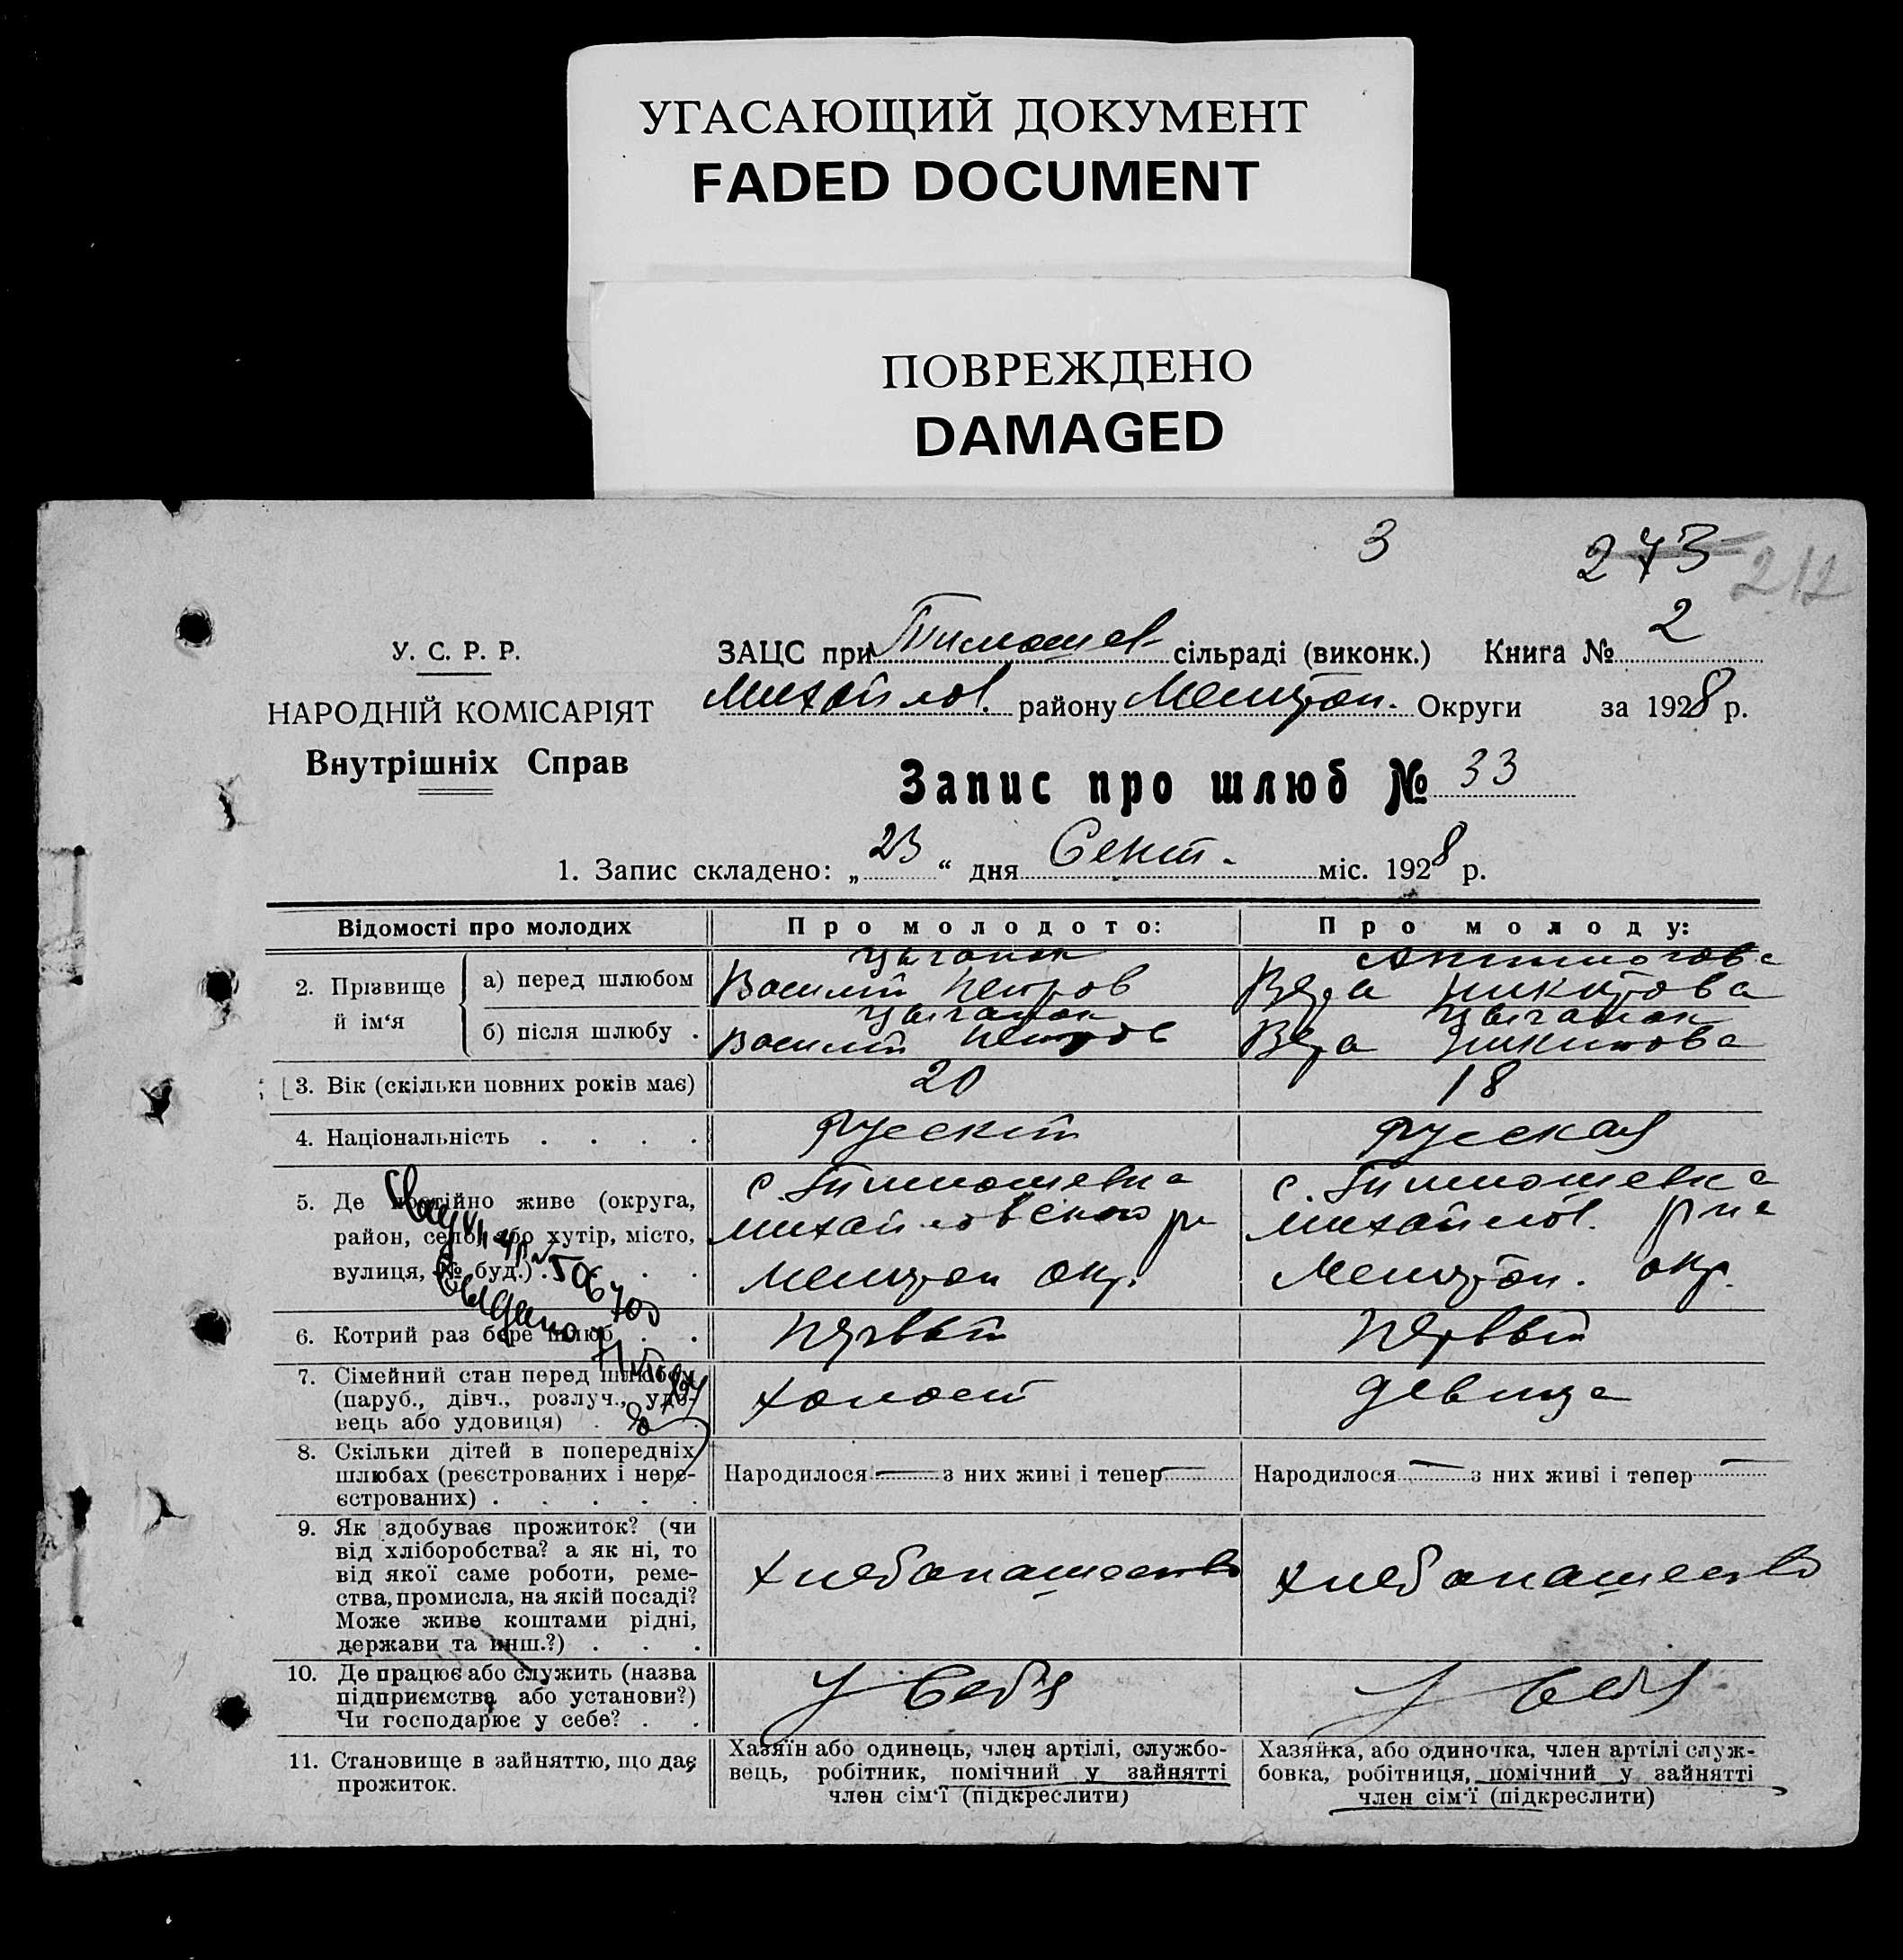 УГАСАЮЩИЙ ДОКУМЕНТ
FADED DOCUMENT
ПОВРЕЖДЕНО
DAMAGED
3
273
212
У. С. Р. Р.
НАРОДНІЙ КОМІСАРІЯТ
Внутрішніх Справ
ЗАЦС при Тимошев. сільраді (виконк.) Книга № 2
Михайлов. району Мелитоп. Округи за 1928 р.
Запис про шлюб № 33
1. Запис складено: „23“ дня Сент. міс. 1928 р.
Відомості про молодих
Про молодого:
Про молоду:
2. Прізвище й ім‘я
а) перед шлюбом
Цыганок
Василий Петров
Вера Никитова
б) після шлюбу .
Цыганок
Василий Петров
Цыганок
Вера Никитова
3. Вік (скільки повних років має)
20
18
4. Національність . . . .
Русский
Русская
5. Де постійно живе (округа,
район, село або хутір, місто,
вулиця, № буд.) . . . .
с. Тимошевка
Михайловского р-на
Мелитоп окр.
с. Тимошевка
Михайлов. р-на
Мелитоп. окр.
6. Котрий раз бере шлюб . .
Первый
Первый
7. Сімейний стан перед шлюбом
(паруб., дівч., розлуч., удо-
вець або удовиця) . .
холост
девица
8. Скільки дітей в попередніх
шлюбах (реєстрованих і нере-
єстрованих) . . . . .
Народилося — з них живі і тепер —
Народилося — з них живі і тепер —
9. Як здобуває прожиток? (чи
від хліборобства? а як ні, то
від якої саме роботи, реме-
ства, промисла, на якій посаді?
Може живе коштами рідні,
держави та инш.?) . . .
хлебопашество
хлебопашество
10. Де працює або служить (назва
підприємства або установи?)
Чи господарює у себе? . .
У себя
У себя
11. Становище в зайняттю, що дає
прожиток.
Хазяїн або одинець, член артілі, службо-
вець, робітник, помічний у зайнятті
член сім‘ї (підкреслити)
Хазяйка, або одиночка, член артілі служ-
бовка, робітниця, помічний у зайнятті
член сім‘ї (підкреслити)